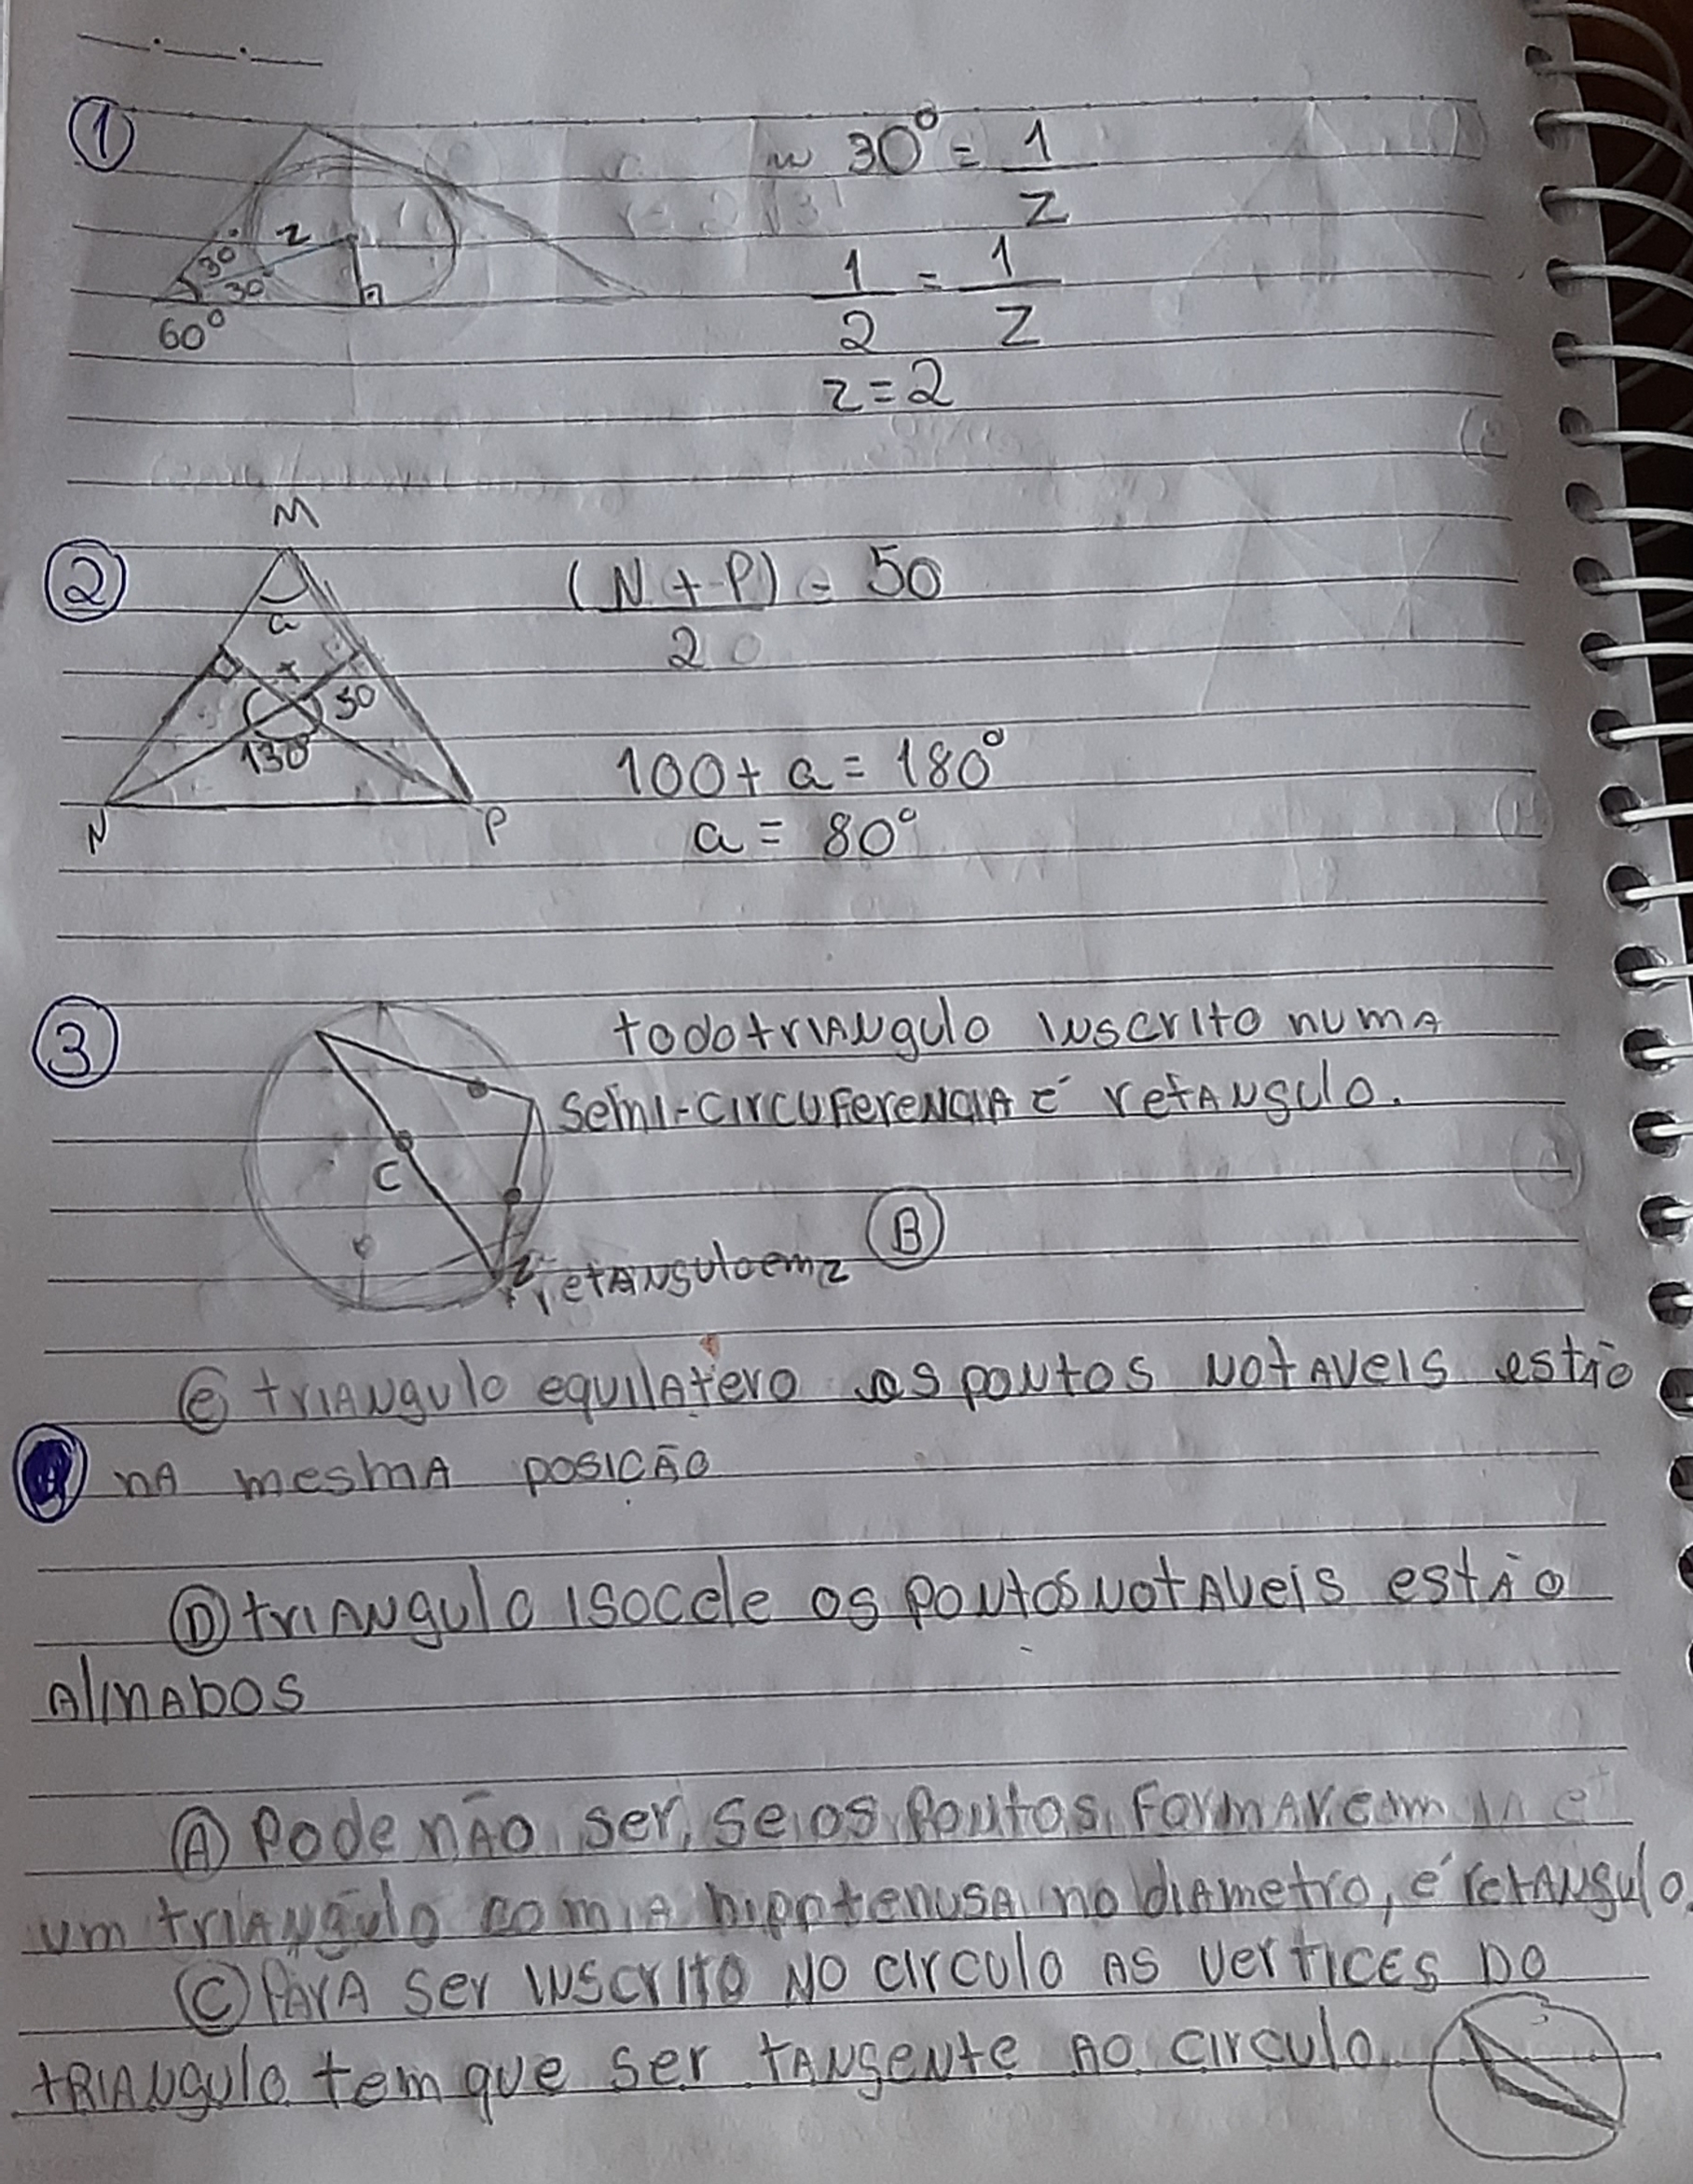 ①
30° = 1
z
z
30°
30
60°
1 = 1
2 z
z = 2
M
② (N + P) = 50
2
a
x
50
130°
100 + a = 180°
a = 80°
N P
③ todo triangulo inscrito numa
semi-circuferencia é retangulo.
C
B
z retangulo em z
e triangulo equilatero os pontos notaveis estão
na mesma posição
D triangulo isocele os pontos notaveis estão
alinados
A Pode não ser, se os pontos formarem
um triangulo com a hipotenusa no diametro, é retangulo.
C Para ser inscrito no circulo as vertices do
triangulo tem que ser tangente ao circulo